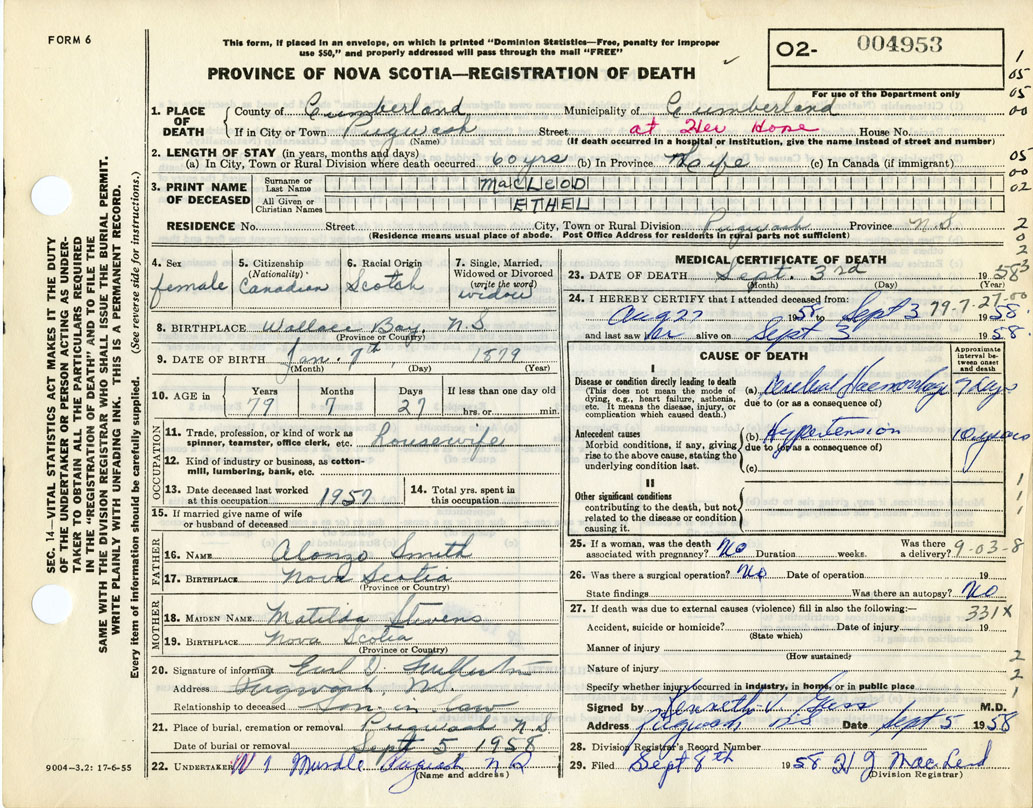 FORM 6
This form, if placed in an envelope, on which is printed "Dominion Statistics—Free, penalty for improper
use $50," and properly addressed will pass through the mail "FREE"
PROVINCE OF NOVA SCOTIA—REGISTRATION OF DEATH
O2- 004953
For use of the Department only
1. PLACE OF DEATH
County of Cumberland Municipality of Cumberland
If in City or Town Pugwash Street at Her Home House No.
(Name) (If death occurred in a hospital or institution, give the name instead of street and number)
2. LENGTH OF STAY (in years, months and days)
(a) In City, Town or Rural Division where death occurred 60 yrs (b) In Province Life (c) In Canada (if immigrant)
3. PRINT NAME OF DECEASED
Surname or Last Name MacLEOD
All Given or Christian Names ETHEL
RESIDENCE No. Street City, Town or Rural Division Pugwash Province N.S.
(Residence means usual place of abode. Post Office Address for residents in rural parts not sufficient)
4. Sex female
5. Citizenship (Nationality) Canadian
6. Racial Origin Scotch
7. Single, Married, Widowed or Divorced (write the word) widow
8. BIRTHPLACE Wallace Bay, N.S.
(Province or Country)
9. DATE OF BIRTH Jan. 7th, 1879
(Month) (Day) (Year)
10. AGE in Years 79 Months 7 Days 27 If less than one day old hrs. or min.
OCCUPATION
11. Trade, profession, or kind of work as spinner, teamster, office clerk, etc. housewife
12. Kind of industry or business, as cotton-mill, lumbering, bank, etc.
13. Date deceased last worked at this occupation 1957
14. Total yrs. spent in this occupation
15. If married give name of wife or husband of deceased
FATHER
16. NAME Alonzo Smith
17. BIRTHPLACE Nova Scotia
(Province or Country)
MOTHER
18. MAIDEN NAME Matilda Stevens
19. BIRTHPLACE Nova Scotia
(Province or Country)
20. Signature of informant Earl
Address Pugwash, N.S.
Relationship to deceased Son-in-law
21. Place of burial, cremation or removal Pugwash N.S.
Date of burial or removal Sept 5, 1958
22. UNDERTAKER Pugwash N.S.
(Name and address)
MEDICAL CERTIFICATE OF DEATH
23. DATE OF DEATH Sept. 3rd 1958
(Month) (Day) (Year)
24. I HEREBY CERTIFY that I attended deceased from:
Aug 27 1958 to Sept 3 1958
79-7-27-00
and last saw her alive on Sept 3 1958
CAUSE OF DEATH
Approximate interval between onset and death
I
Disease or condition directly leading to death
(This does not mean the mode of dying, e.g., heart failure, asthenia, etc. It means the disease, injury, or complication which caused death.)
(a) Cerebral Haemorrhage 7 days
due to (or as a consequence of)
Antecedent causes
Morbid conditions, if any, giving rise to the above cause, stating the underlying condition last.
(b) Hypertension 10 years
due to (or as a consequence of)
(c)
II
Other significant conditions
contributing to the death, but not related to the disease or condition causing it.
25. If a woman, was the death associated with pregnancy? No Duration weeks. Was there a delivery? 9-03-8
26. Was there a surgical operation? No Date of operation 19
State findings Was there an autopsy? No
27. If death was due to external causes (violence) fill in also the following:— 331X
Accident, suicide or homicide? Date of injury 19
(State which)
Manner of injury
(How sustained)
Nature of injury
Specify whether injury occurred in industry, in home, or in public place
Signed by Kenneth M.D.
Address Pugwash N.S. Date Sept 5 1958
28. Division Registrar's Record Number
29. Filed Sept 8th 1958 H J MacLeod
(Division Registrar)
SEC. 14—VITAL STATISTICS ACT MAKES IT THE DUTY
OF THE UNDERTAKER OR PERSON ACTING AS UNDER-
TAKER TO OBTAIN ALL THE PARTICULARS REQUIRED
IN THE "REGISTRATION OF DEATH" AND TO FILE THE
SAME WITH THE DIVISION REGISTRAR WHO SHALL ISSUE THE BURIAL PERMIT.
WRITE PLAINLY WITH UNFADING INK. THIS IS A PERMANENT RECORD.
Every item of information should be carefully supplied. (See reverse side for instructions.)
9004—3.2: 17-6-55
1
05
05
00
05
00
02
2
2
1
1
1
2
2
1